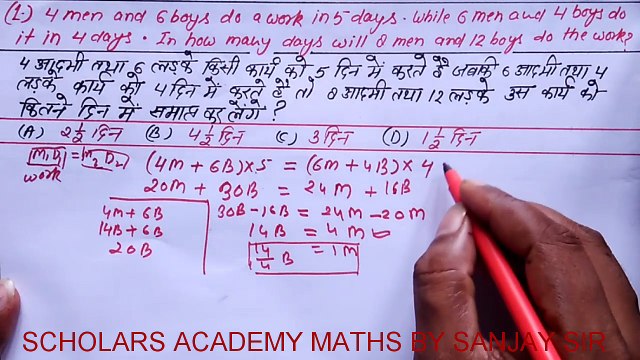 (1.) 4 men and 6 boys do a work in 5 days. While 6 men and 4 boys do
it in 4 days. In how many days will 8 men and 12 boys do the work?
4 आदमी तथा 6 लड़के किसी कार्य को 5 दिन में करते हैं जबकी 6 आदमी तथा 4
लड़के कार्य को 4 दिन में करते हैं तो 8 आदमी तथा 12 लड़के उस कार्य को
कितने दिन में समाप्त कर लेंगे ?
(A) 2 1/2 दिन (B) 4 1/2 दिन (C) 3 दिन (D) 1 1/2 दिन
M1D1 = M2D2 (4M + 6B) × 5 = (6M + 4B) × 4
work
20M + 30B = 24M + 16B
4M + 6B 30B - 16B = 24M - 20M
14B + 6B 14B = 4M
20B 14/4 B = 1M
SCHOLARS ACADEMY MATHS BY SANJAY SIR